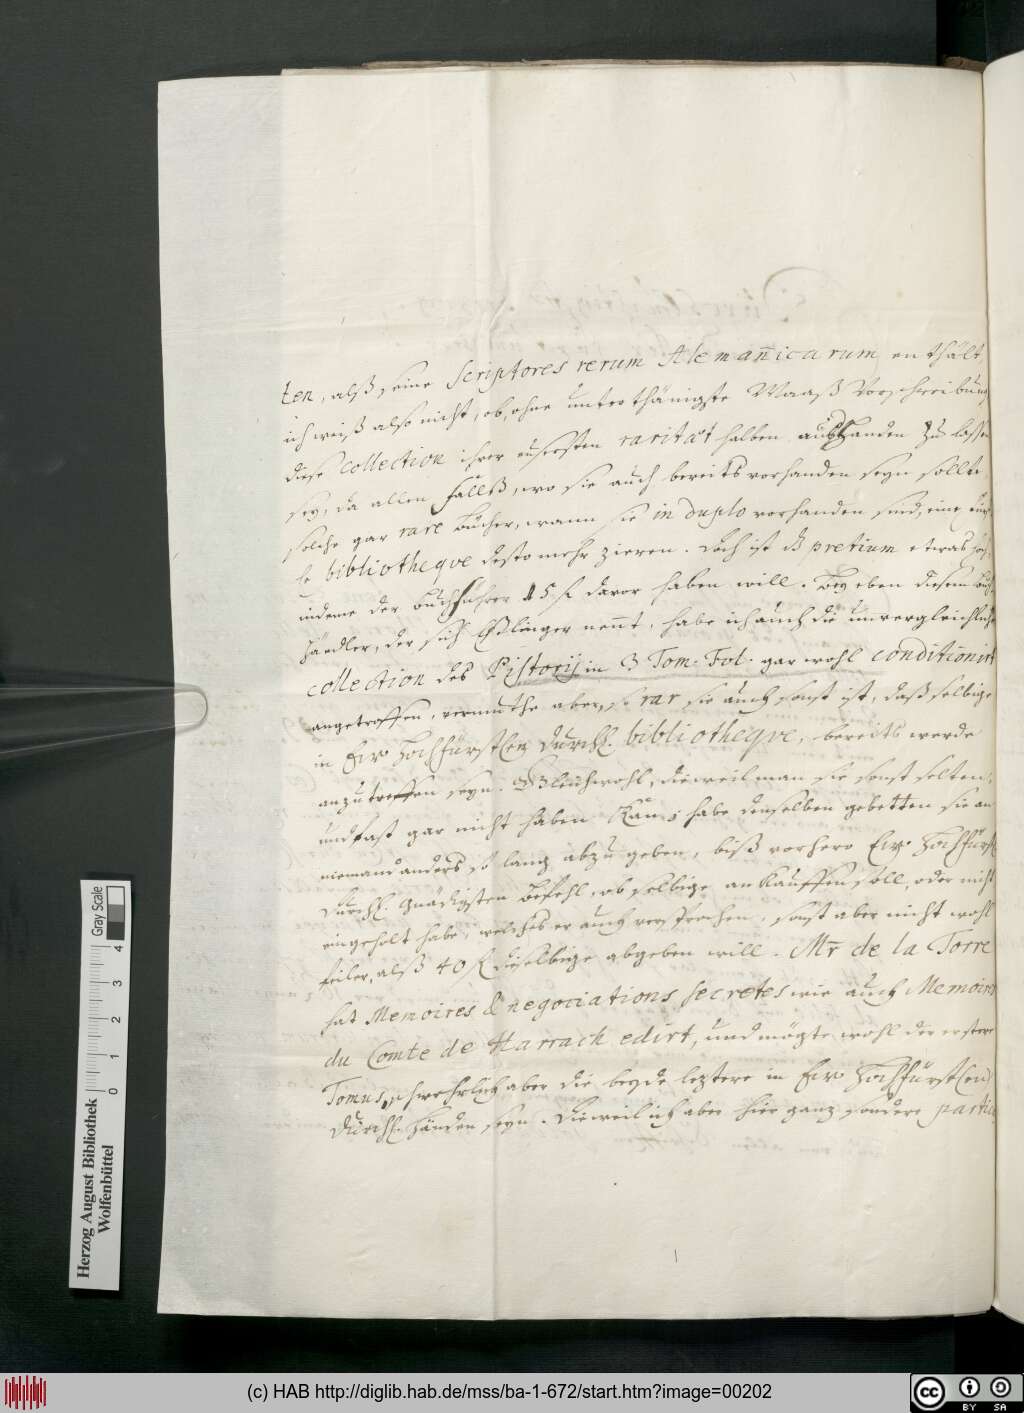 ten, alß seine Scriptores rerum Alemañicarum enthält
ich weiß also nicht, ob, ohne unterthänigste Maaß Vorschreibung
diese collection ihrer eusersten raritæt halben außhanden zu laßen
sey, da allen fallß, wo sie auch bereits vorhanden seyn sollte
solche gar rare bücher, wann sie in duplo vorhanden sind, eine
bibliotheqve desto mehr zieren. Doch ist dz pretium etwas hoch
indeme der buchführer 15 f davor haben will. Bey eben diesem buch
händler, der sich Eßlinger nennt, habe ich auch die unvergleichliche
collection des Pistorij in 3 Tom. Fol. gar wohl conditionirt
angetroffen, vermuthe aber, so rar sie auch sonst ist, daß selbige
in Ew. Hochfürstlen Durchl. bibliotheqve, bereits werde
anzutreffen seyn. Gleichwohl, dieweil man sie sonst selten,
und fast gar nicht haben kan; habe denselben gebetten sie an
niemand anders so lang abzugeben, biß vorhero Ew. Hochfürstl
Durchl. gnädigsten befehl, ob selbige ankauffen soll, oder nicht
eingeholt habe, welches er auch versprochen, sonst aber nicht wohl
feiler, alß 40 f dieselbige abgeben will. Mr̄ de la Torre
hat Memoires & negociations secretes wie auch Memoires
du Comte de Harrach edirt, und mögte wohl der erstere
Tomus, schwehrlich aber die beyde leztere in Ew Hochfürstlen
Durchl. händen seyn. Dieweil ich aber hier ganz sondere partic
Herzog August Bibliothek
Wolfenbüttel
0 1 2 3 4
Gray Scale
(c) HAB http://diglib.hab.de/mss/ba-1-672/start.htm?image=00202
cc BY SA